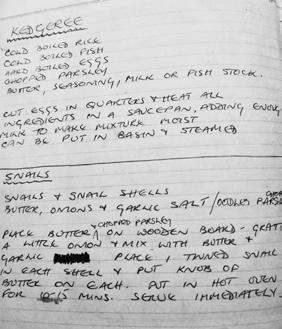 KEDGEREE
COLD BOILED RICE
COLD BOILED FISH
HARD BOILED EGGS
CHOPPED PARSLEY
BUTTER, SEASONING, MILK OR FISH STOCK.
CUT EGGS IN QUARTERS & HEAT ALL
INGREDIENTS IN A SAUCEPAN, ADDING ENOUG
MILK TO MAKE MIXTURE MOIST
CAN BE PUT IN BASIN & STEAMED
SNAILS
SNAILS & SNAIL SHELLS
BUTTER, ONIONS & GARLIC SALT/OODLES CHOPP PARSL
& CHOPPED PARSLEY
PLACE BUTTER ON WOODEN BEARD - GRATE
A LITTLE ONION & MIX WITH BUTTER &
GARLIC PLACE 1 TINNED SNAIL
IN EACH SHELL & PUT KNOB OF
BUTTER ON EACH. PUT IN HOT OVEN
FOR 15 MINS. SERVE IMMEDIATELY.